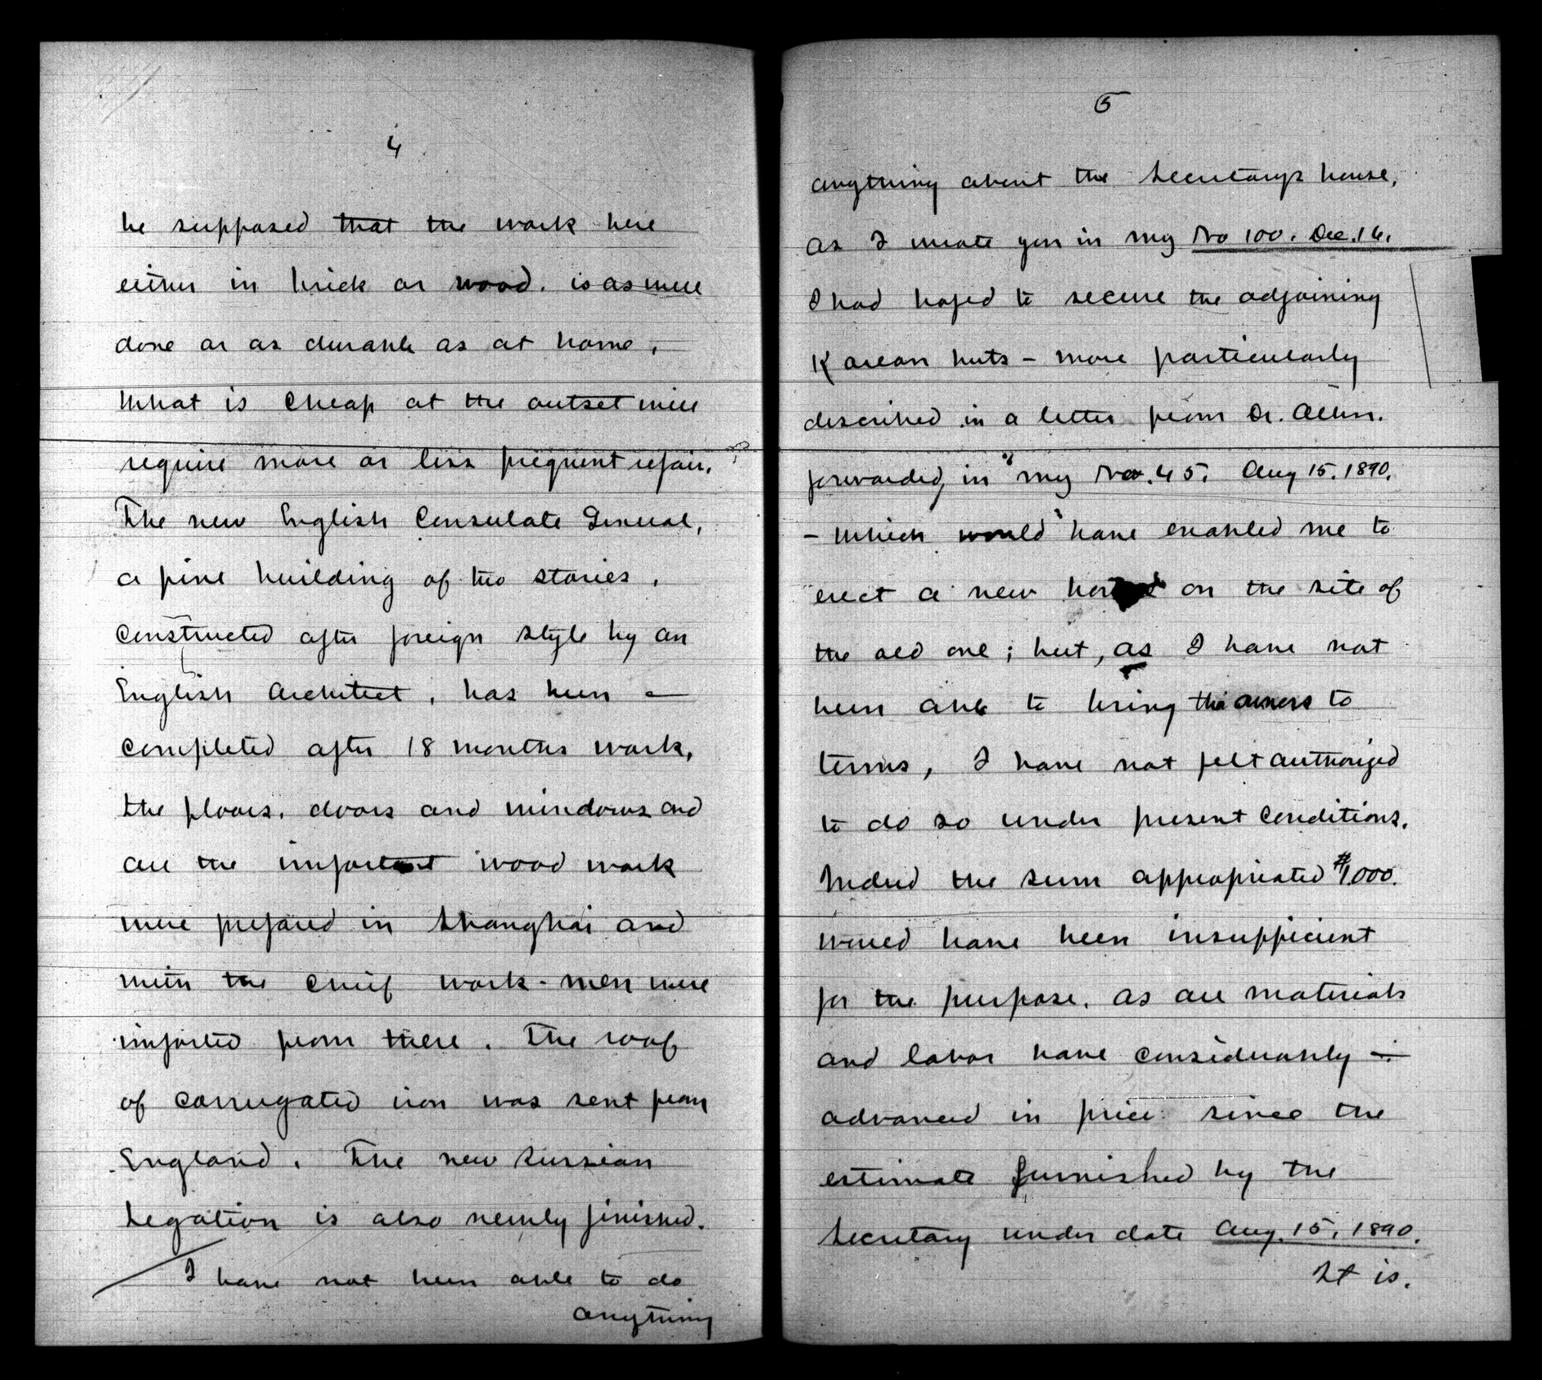 4
be supposed that the work here
either in brick or wood. is as well
done or as durable as at home.
What is cheap at the outset will
require more or less frequent repair.
The new English Consulate General,
a fine building of two stories,
constructed after foreign style by an
English Architect, has been —
completed after 18 months work,
the floors, doors and windows and
all the important wood work
were prepared in Shanghai and
with the chief work-men were
imported from there. The roof
of corrugated iron was sent from
England. The new Russian
Legation is also newly finished.
I have not been able to do
anything
5
anything about the Secretarys house,
As I wrote you in my No 100. Dec. 16.
I had hoped to secure the adjoining
Korean huts – more particularly
described in a letter from Dr. Allen.
forwarded, in my No. 45. Aug 15. 1890.
– which would have enabled me to
erect a new house on the site of
the old one; but, as I have not
been able to bring the owners to
terms, I have not felt authorized
to do so under present conditions.
Indeed the sum appropriated $1,000.
would have been insufficient
for the purpose. as all materials
and labor have considerably —
advanced in price since the
estimate furnished by the
Secretary under date Aug. 15, 1890.
It is.